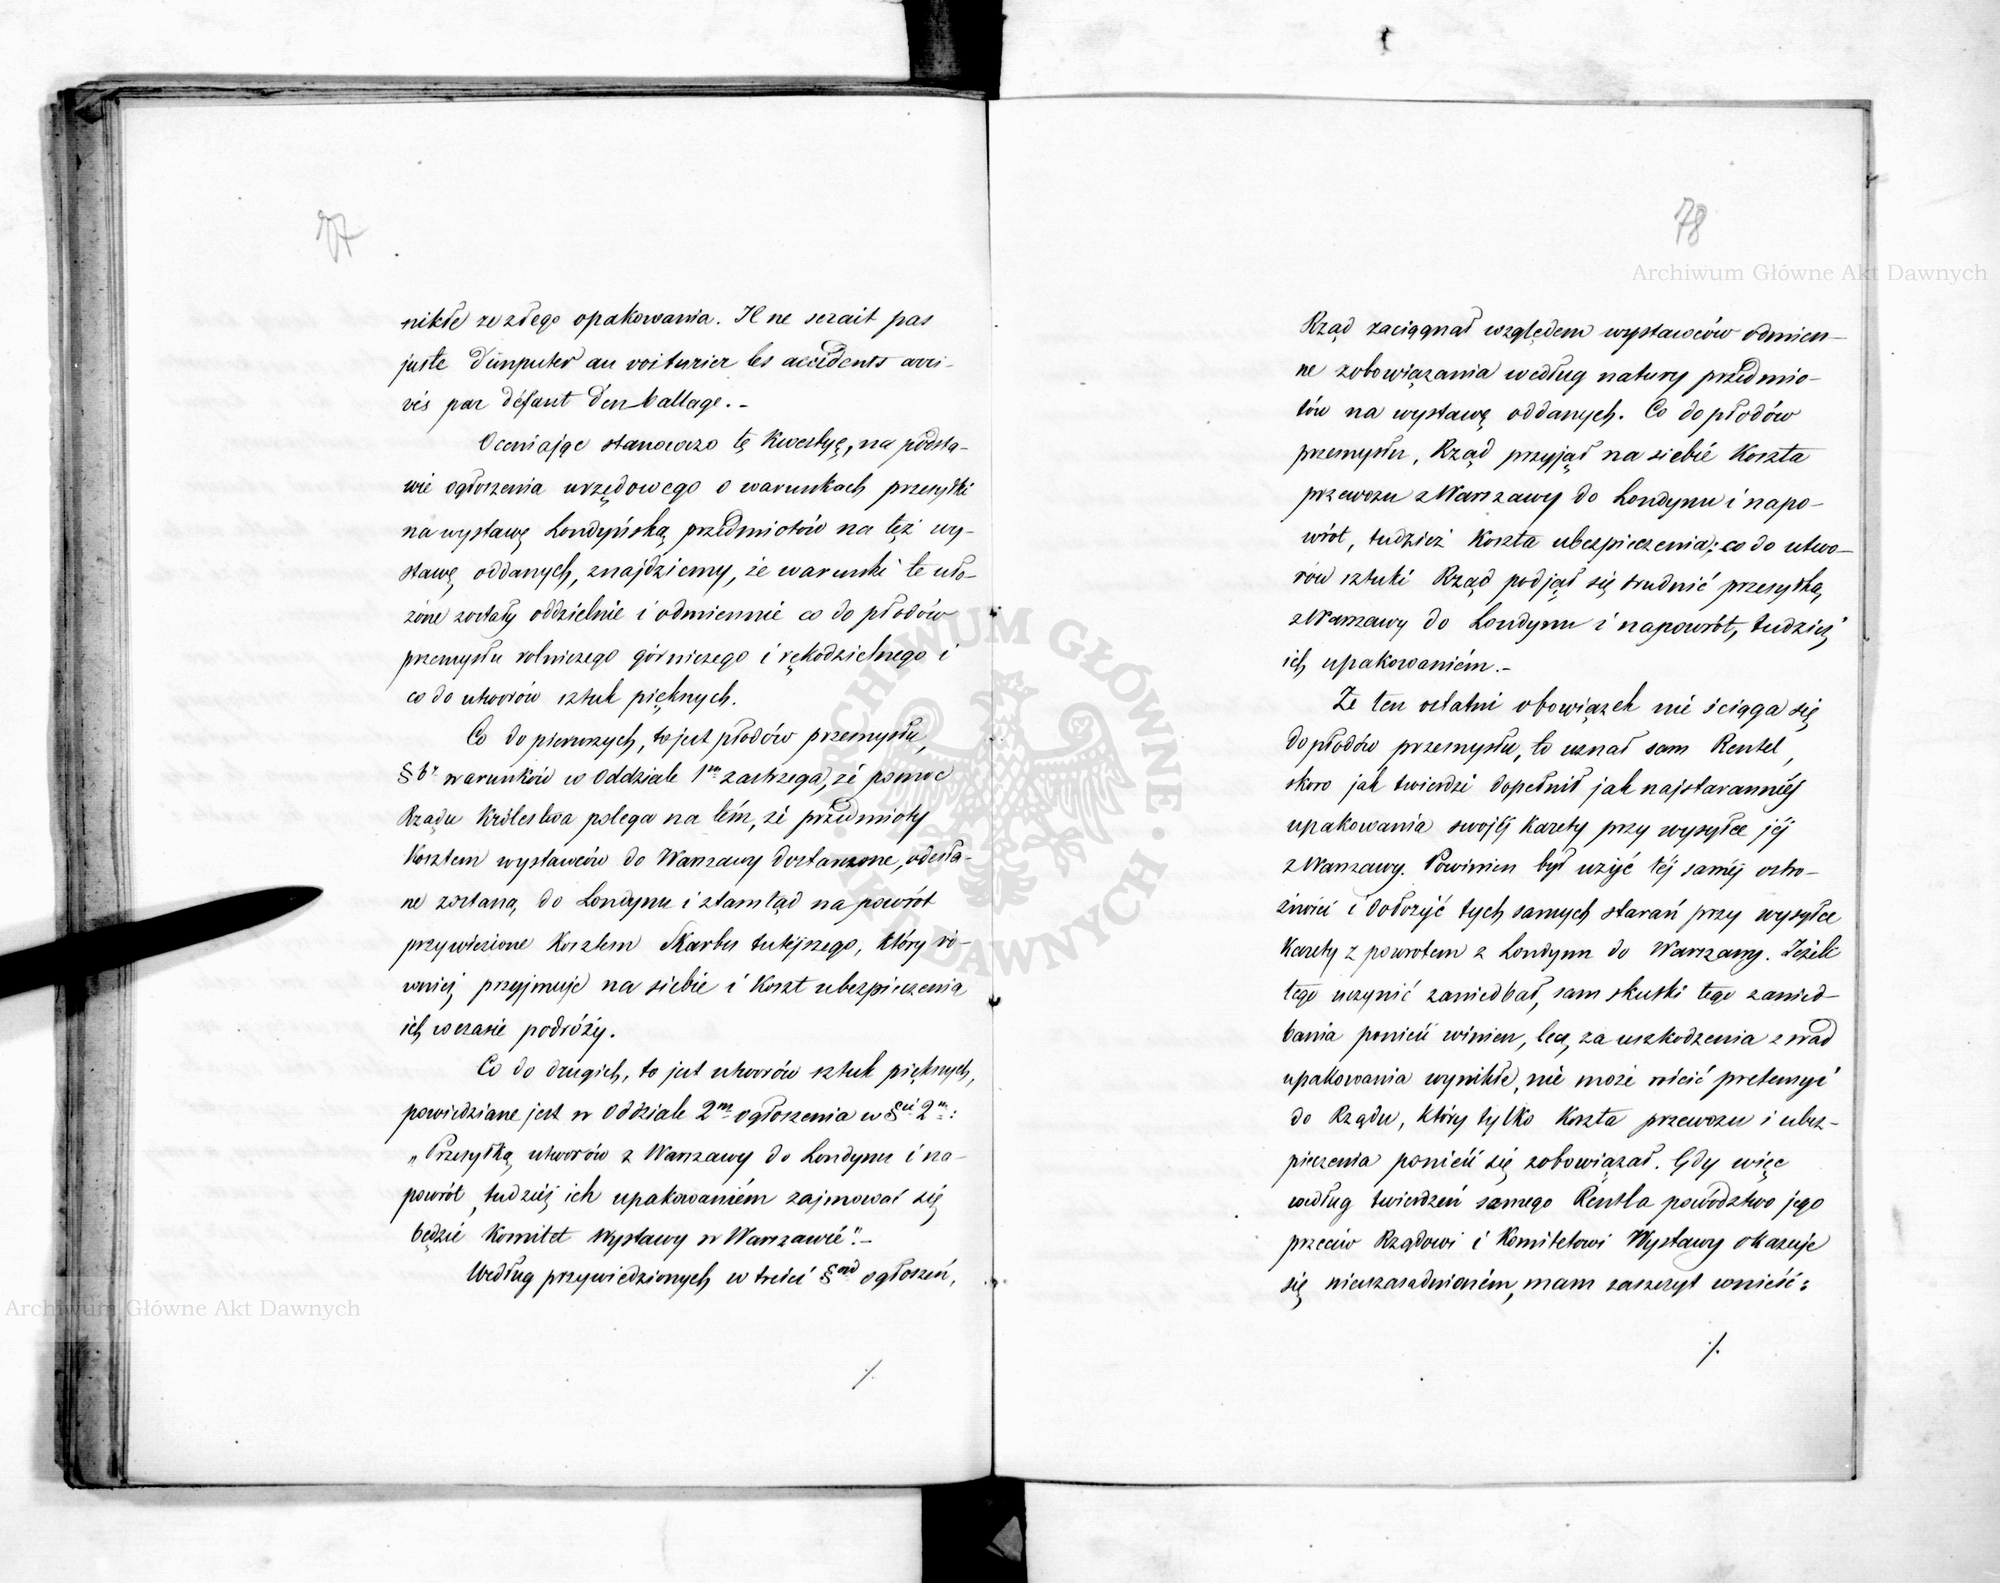 77
nikłe ze złego opakowania. Il ne serait pas
juste d'imputer au voiturier les accidents arri-
vés par défaut d'emballage. -
Oceniając stanowczo tę Kwestyę, na podsta-
wie ogłoszenia urzędowego o warunkach przesyłki
na wystawę Londyńską przedmiotów na tęż wy-
stawę oddanych, znajdziemy, że warunki te uło-
żone zostały oddzielnie i odmiennie co do płodów
przemysłu rolniczego górniczego i rękodzielnego i
co do utworów sztuk pięknych.
Co do pierwszych, to jest płodów przemysłu,
§ 6r warunków w Oddziale 1m zastrzega, że pomoc
Rządu Królestwa polega na tém, że przedmioty
Kosztem wystawców do Warszawy dostarczone, odesła-
ne zostaną do Londynu i ztamtąd na powrót
przywiezione Kosztem Skarbu tutejszego, który ró-
wnież przyjmuje na siebie i Koszt ubezpieczenia
ich w czasie podróży.
Co do drugich, to jest utworów sztuk pięknych,
powiedziane jest w Oddziale 2m ogłoszenia w §cie 2m:
„Przesyłką utworów z Warszawy do Londynu i na-
powrót, tudzież ich upakowaniém zajmować się
będzie Komitet Wystawy w Warszawie". -
Według przywiedzionych w treści § ogłoszeń,
./.
78
Rząd zaciągnął względem wystawców odmien-
ne zobowiązania według natury przedmio-
tów na wystawę oddanych. Co do płodów
przemysłu, Rząd przyjął na siebie Koszta
przewozu z Warszawy do Londynu i napo-
wrót, tudzież Koszta ubezpieczenia; co do utwo-
rów sztuki Rząd podjął się trudnić przesyłką
z Warszawy do Londynu i napowrót, tudzież
ich upakowaniém. -
Że ten ostatni obowiązek nie ściąga się
do płodów przemysłu, to uznał sam Rentel,
skoro jak twierdzi dopełnił jak najstaranniéj
upakowania swojéj Karety przy wysyłce jéj
z Warszawy. Powinien był użyć téj saméj ostro-
żności i dołożyć tych samych starań przy wysyłce
Karety z powrotem z Londynu do Warszawy. Jeżeli
tego uczynić zaniedbał, sam skutki tego zanied-
bania ponieść winien, lecz za uszkodzenia z wad
upakowania wynikłe, nie może rościć pretensyi
do Rządu, który tylko Koszta przewozu i ubez-
pieczenia ponieść się zobowiązał. Gdy więc
według twierdzeń samego Rentla powództwo jego
przeciw Rządowi i Komitetowi Wystawy okazuje
się nieuzasadnioném, mam zaszczyt wnieść:
./.
Archiwum Główne Akt Dawnych
Archiwum Główne Akt Dawnych
ARCHIWUM GŁÓWNE AKT DAWNYCH